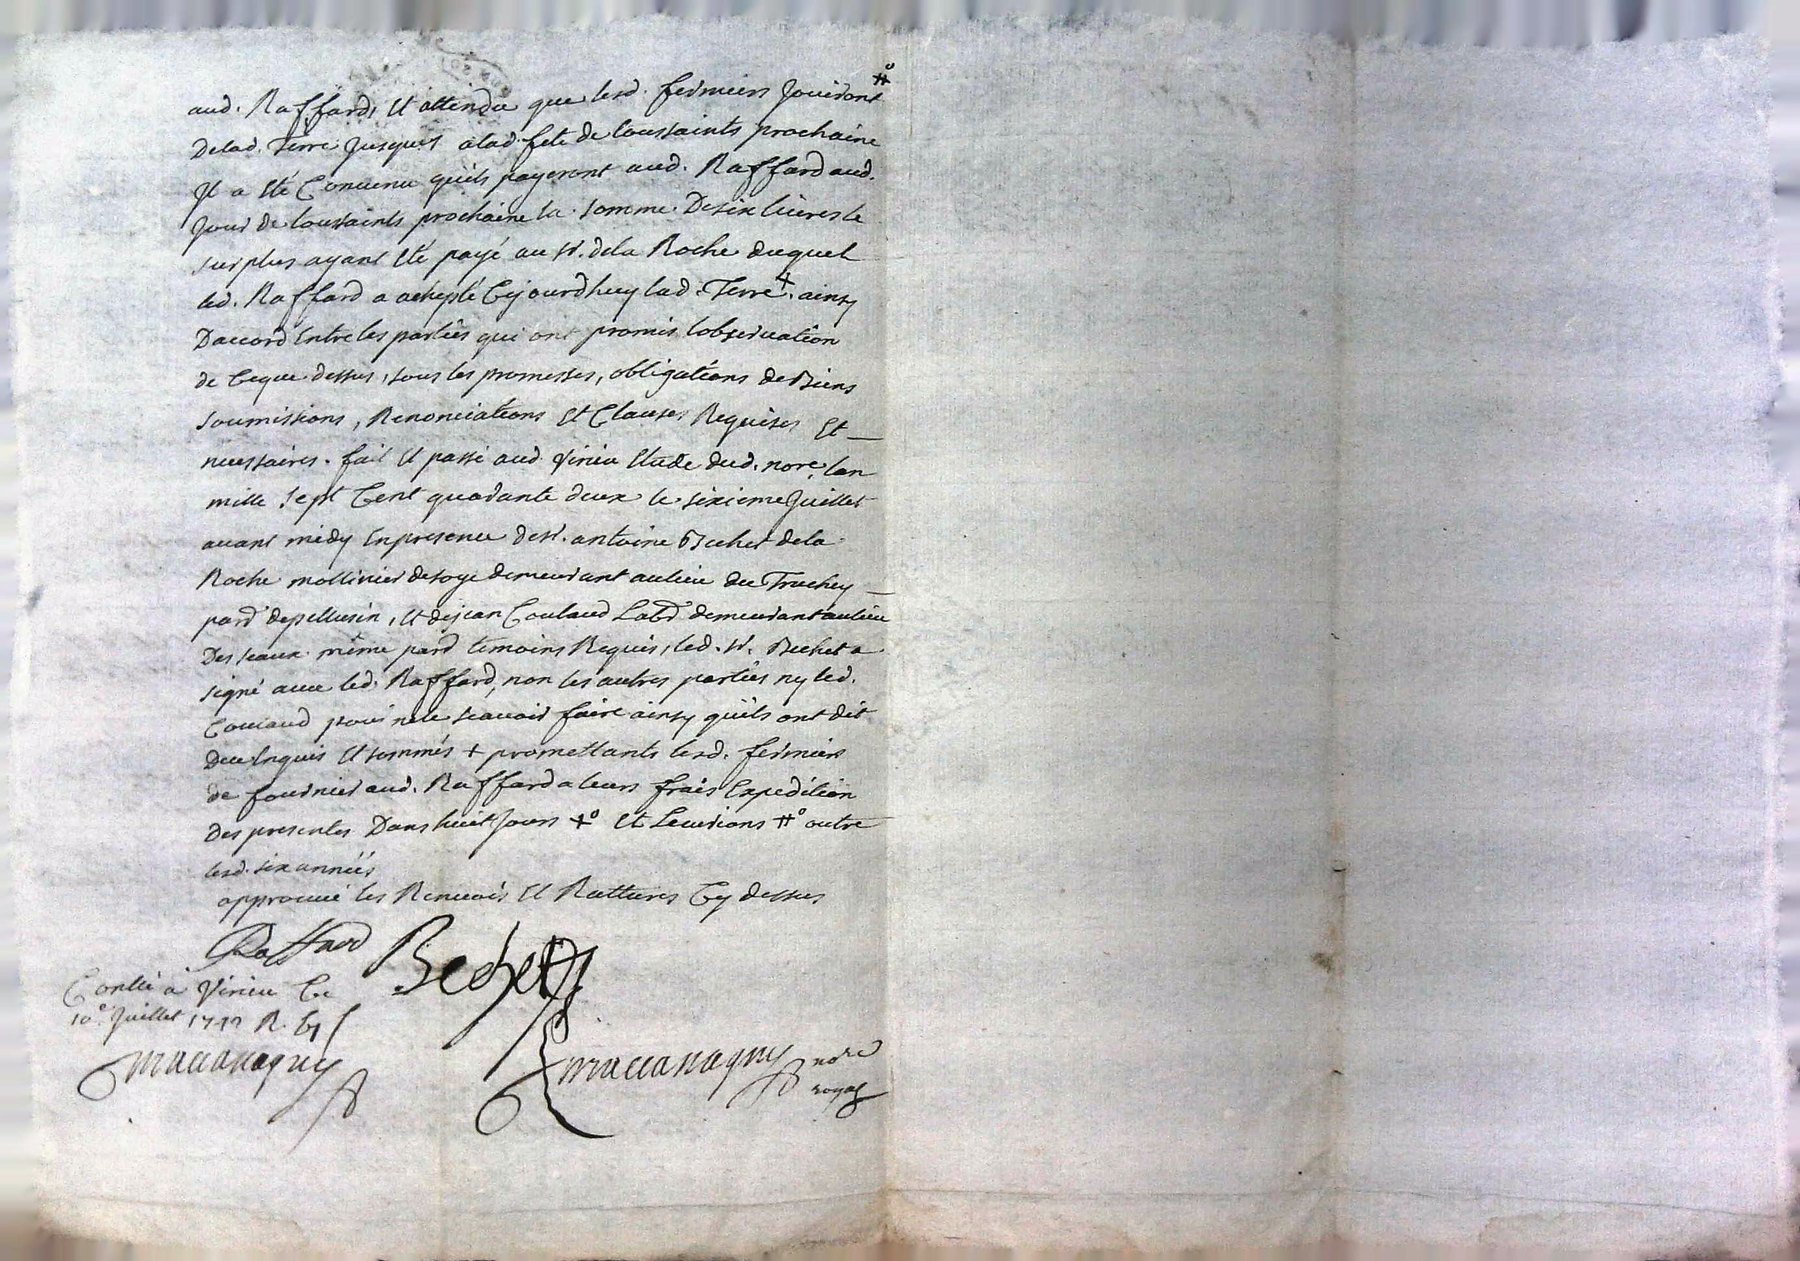 aud. Raffard, Et attendu que lesd. fermiers Jouiront #°
Delad. Terre Jusques alad. fete de toussaints prochaine
Il a Eté Convenu quils payeront aud. Raffard aud.
Jour de toussaints prochaine la somme De six livres le
surplus ayant Eté payé au Sr. dela Roche duquel
led. Raffard a achepté Cejourdhuy lad. Terre +. ainsy
Daccord Entre les parties qui ont promis lobservation
de Ceque dessus, sous les promesses, obligations de Biens
soumissions, Renonciations Et Clauses Requises Et
necessaires. fait Et passé aud. Virieu Etude dud. nore. lan
mille sept Cent quarante deux le sixieme Juillet
avant midy En presence de Sr. antoine Bechet dela
Roche mollinier de soye demeurant au lieu du Truchey
parr. de pellusin, Et de jean Coulaud Labr. demeurant au lieu
Des seaux même parr. temoins Requis, led. Sr. Bechet a
signé avec led. Raffard, non les autres parties ny led.
Coulaud pour ne le scavoir faire ainsy quils ont dit
De ce Enquis Et sommés + promettants lesd. fermiers
de fournir aud. Raffard a leurs frais Expedition
Des presentes Dans huit Jours +° Et #° outre
lesd. six années
approuvé les Renvois Et Rattures Cy dessus
Raffard Bechet
Conlé à Virieu Ce
10e. Juillet 1742 R.